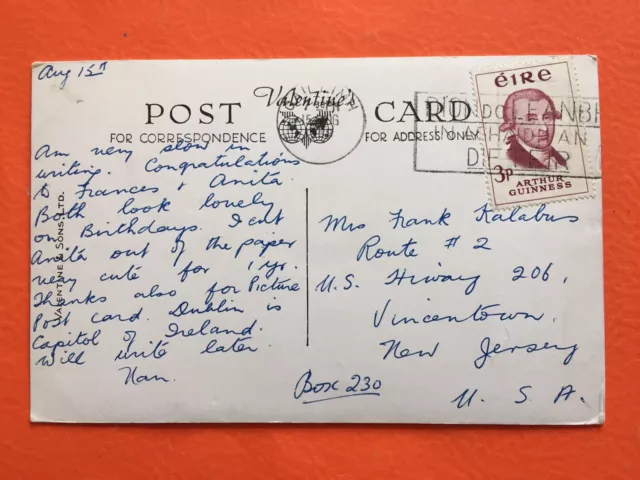 Aug 15th
Valentine's
POST CARD
FOR CORRESPONDENCE
FOR ADDRESS ONLY
ÉIRE
3p
ARTHUR
GUINNESS
VALENTINE & SONS, LTD.
Am very slow in
writing. Congratulations
to Frances & Anita.
Both look lovely
on Birthdays. I cut
Anita out of the paper
very cute for 1 yr.
Thanks also for Picture
Post card. Dublin is
Capitol of Ireland.
Will write later.
Nan.
Mrs Frank Kalabus
Route # 2
U.S. Hiway 206,
Vincentown,
New Jersey
U. S. A.
Box 230